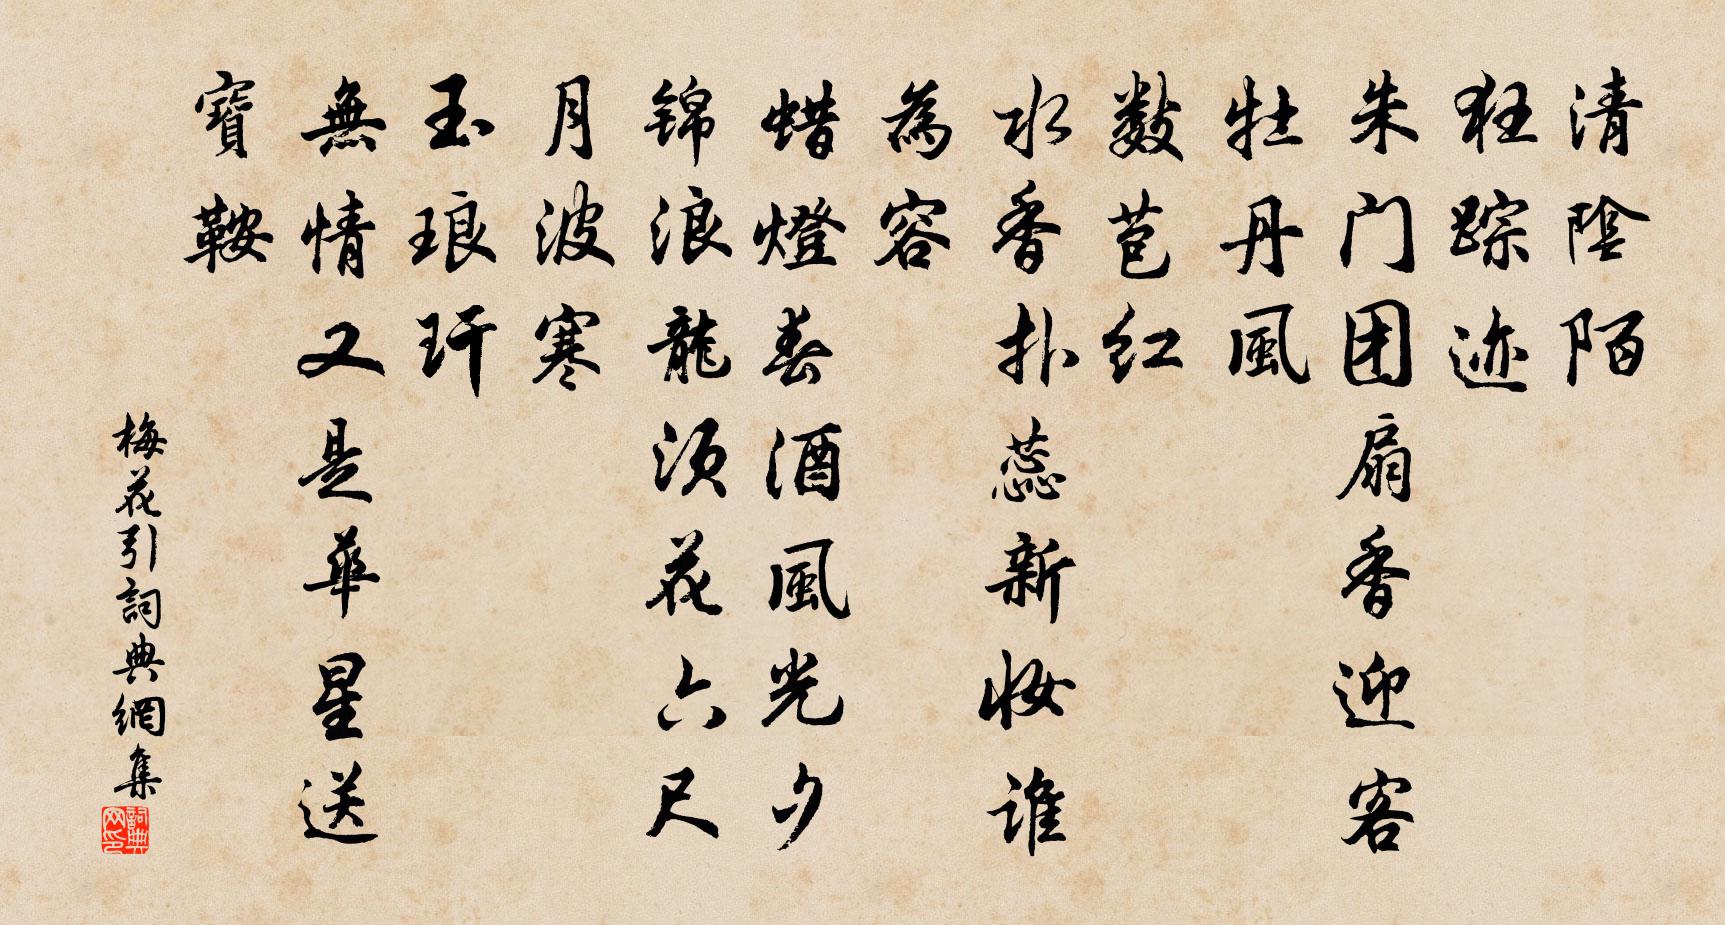 清陰陌
狂踪迹
朱门团扇香迎客
牡丹風
数苞红
水香扑蕊新妆谁
為容
蜡燈春酒風光夕
锦浪龍须花六尺
月波寒
玉琅玕
無情又是華星送
寶鞍
梅花引詞典網集
詞典
网印